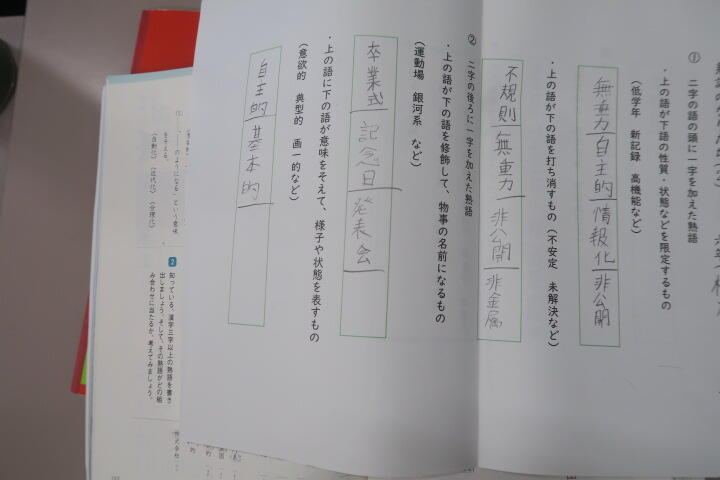 ① 二字の語の頭に一字を加えた熟語
・上の語が下語の性質・状態などを限定するもの
(低学年 新記録 高機能など)
無重力 自主的 情報化 非公開
・上の語が下の語を打ち消すもの(不安定 未解決など)
不規則 無重力 非公開 非金属
② 二字の後ろに一字を加えた熟語
・上の語が下の語を修飾して、物事の名前になるもの
(運動場 銀河系 など)
卒業式 記念日 発表会
・上の語に下の語が意味をそえて、様子や状態を表すもの
(意欲的 典型的 画一的など)
自主的 基本的
のようになる」という意味
をそえる。
(自動化)(近代化)(合理化)
2 知っている、漢字三字以上の熟語を書き
出しましょう。そして、その熟語がどの組
み合わせに当たるか、考えてみましょう。
株式会社